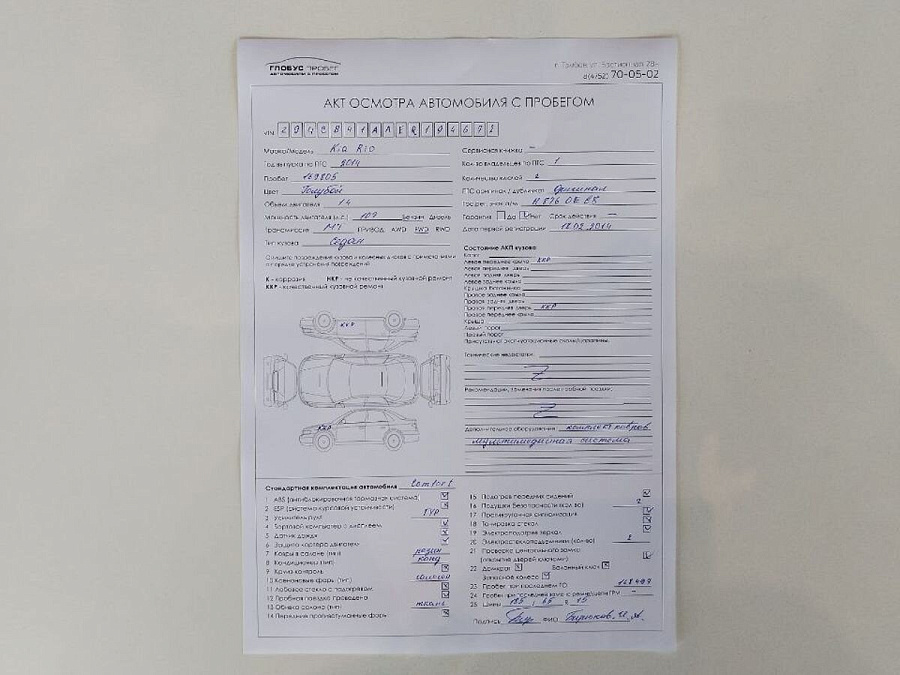 ГЛОБУС ПРОБЕГ
АВТОМОБИЛИ С ПРОБЕГОМ
г. Тамбов, ул. Бастионная 28
8(4752) 70-05-02
АКТ ОСМОТРА АВТОМОБИЛЯ С ПРОБЕГОМ
VIN
Марка/Модель Kia RIO
Год выпуска по ПТС 2014
Пробег 149805
Цвет Голубой
Объем двигателя 1.4
Мощность двигателя (л.с.) 107 Бензин Дизель
Трансмиссия МТ ПРИВОД: AWD FWD RWD
Тип кузова Седан
К - коррозия НКР - не качественный кузовной ремонт
ККР - качественный кузовной ремонт
ККР
ККР
Сервисная книжка –
Кол-во владельцев по ПТС 1
Количество ключей 2
ПТС оригинал / дубликат Оригинал
Гос. рег. знак
Гарантия Да Нет Срок действия –
Дата первой регистрации 18.02.2014
Состояние ЛКП кузова:
Капот
Левое переднее крыло ККР
Левая передняя дверь
Левая задняя дверь
Левое заднее крыло
Крышка багажника
Правое заднее крыло
Правая задняя дверь
Правая передняя дверь ККР
Правое переднее крыло
Крыша
Левый порог
Правый порог
Присутствуют эксплуатационные сколы/царапины.
Технические недостатки:
Z
Z
Дополнительное оборудование: комплект ковров
мультимедийная система
Стандартная комплектация автомобиля Comfort
1 ABS (антиблокировочная тормозная система)
2 ESP (система курсовой устойчивости)
3 Усилитель руля ГУР
4 Бортовой компьютер с дисплеем
5 Датчик дождя
6 Защита картера двигателя
7 Ковры в салоне (тип) резин
8 Кондиционер (тип) конд
9 Круиз контроль
10 Ксеноновые фары (тип)
11 Лобовое стекло с подогревом
12 Пробная поездка проведена
13 Обивка салона (тип) ткань
14 Передние противотуманные фары
15 Подогрев передних сидений
16 Подушки безопасности (кол-во) 2
17 Противоугонная сигнализация
18 Тонировка стекол
19 Электроподогрев зеркал
20 Электростеклоподъемники (кол-во) 2
21 Проверка центрального замка
(открытие дверей ключами)
22 Домкрат Балонный ключ
Запасное колесо
23 Пробег при последнем ТО
24 Пробег при последней замене ремня/цепи ГРМ –
25 Шины 185 / 65 R 15
Подпись ФИО Бирюков. И. А.